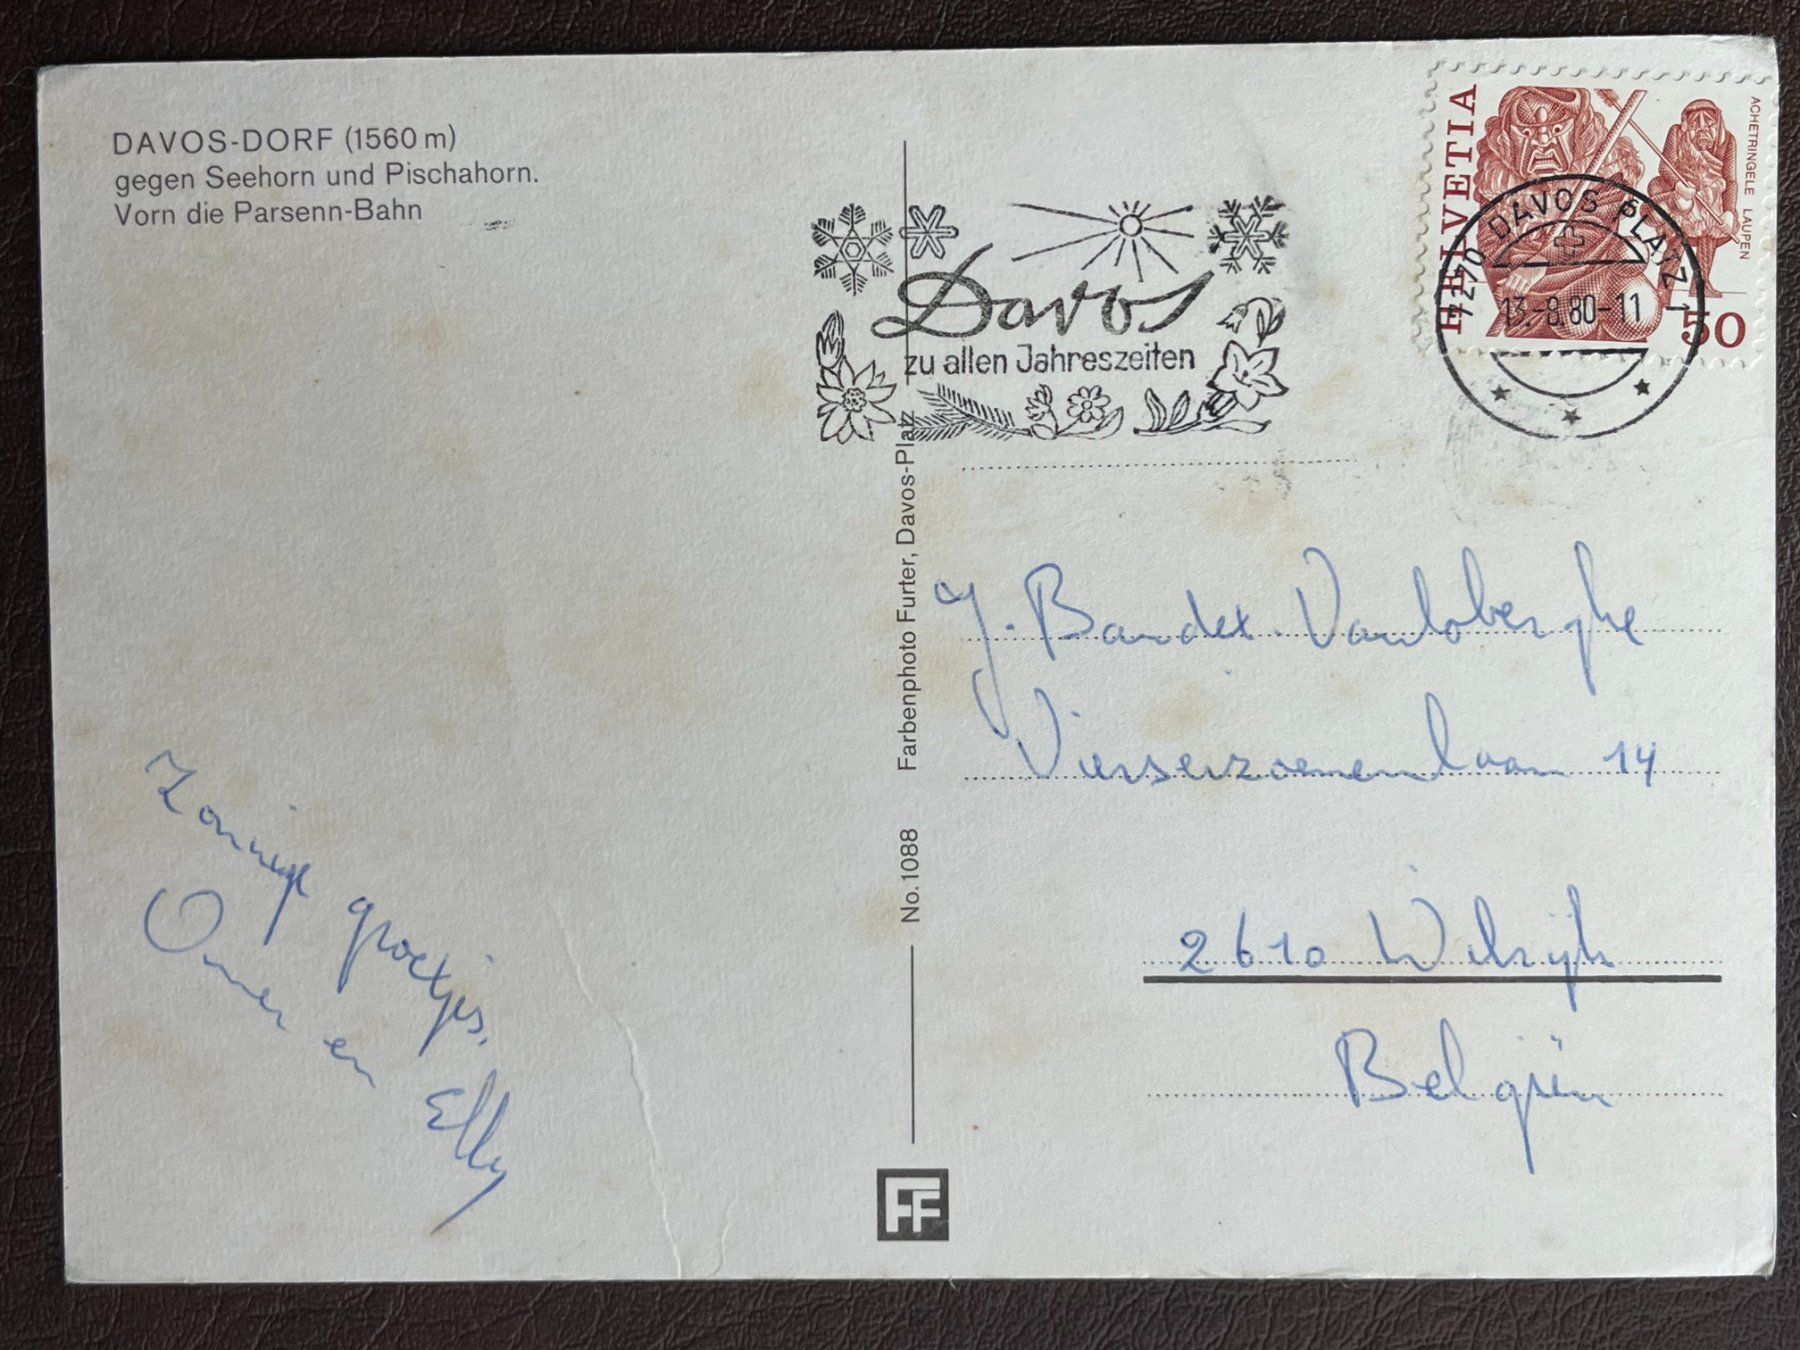 DAVOS-DORF (1560 m)
gegen Seehorn und Pischahorn.
Vorn die Parsenn-Bahn
Zonnige groetjes,
Omer en Elly
No. 1088 Farbenphoto Furter, Davos-Platz
FF
Davos
zu allen Jahreszeiten
HELVETIA
ACHETRINGELE LAUPEN
50
7270 DAVOS PLATZ 1
13.-8.80-11
J. Bandet. Vanloberghe
Vierserzoenenlaan 14
2610 Wilrijk
Belgiën